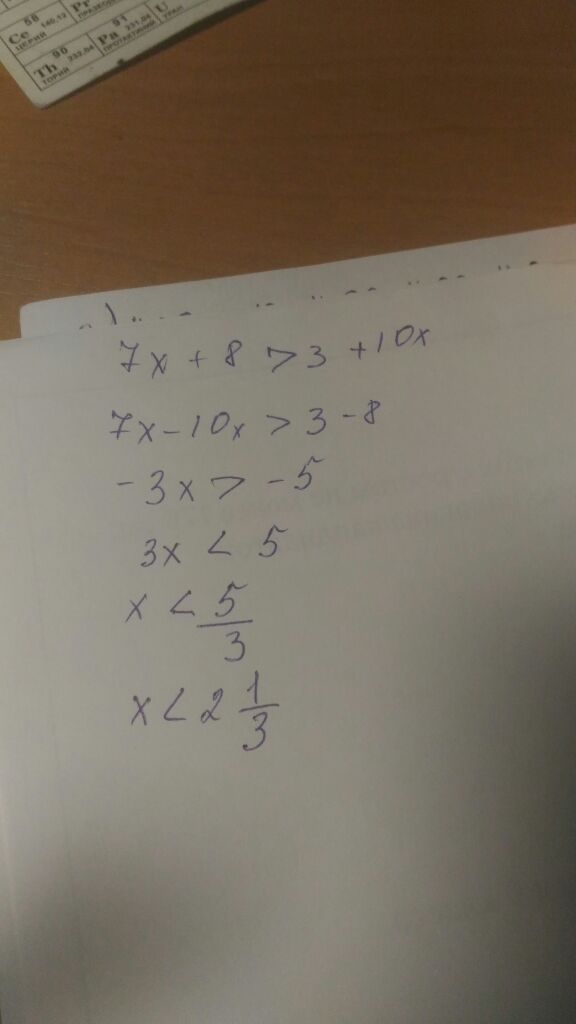 58 Pr
Ce 140,12 ПРАЗЕОД
ЦЕРИЙ 91 U
90 Pa 231,04 УРАН
Th 232,04 ПРОТАКТИНИЙ
ТОРИЙ
7x + 8 > 3 + 10x
7x - 10x > 3 - 8
-3x > -5
3x < 5
x < 5/3
x < 2 1/3